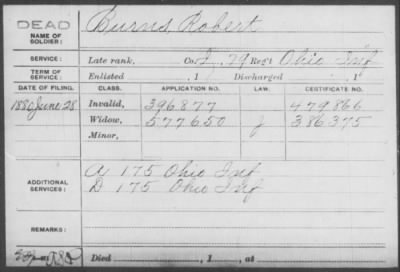 DEAD
NAME OF SOLDIER: Burns, Robert
SERVICE: Late rank, Co. I, 79 Reg't Ohio Inf
TERM OF SERVICE: Enlisted , 1 Discharged , 1
DATE OF FILING. CLASS. APPLICATION NO. LAW. CERTIFICATE NO.
1880 June 28 Invalid, 396877 479866
Widow, 577650 386375
Minor,
ADDITIONAL SERVICES: A 175 Ohio Inf
D 175 Ohio Inf
REMARKS:
Died , 1 , at